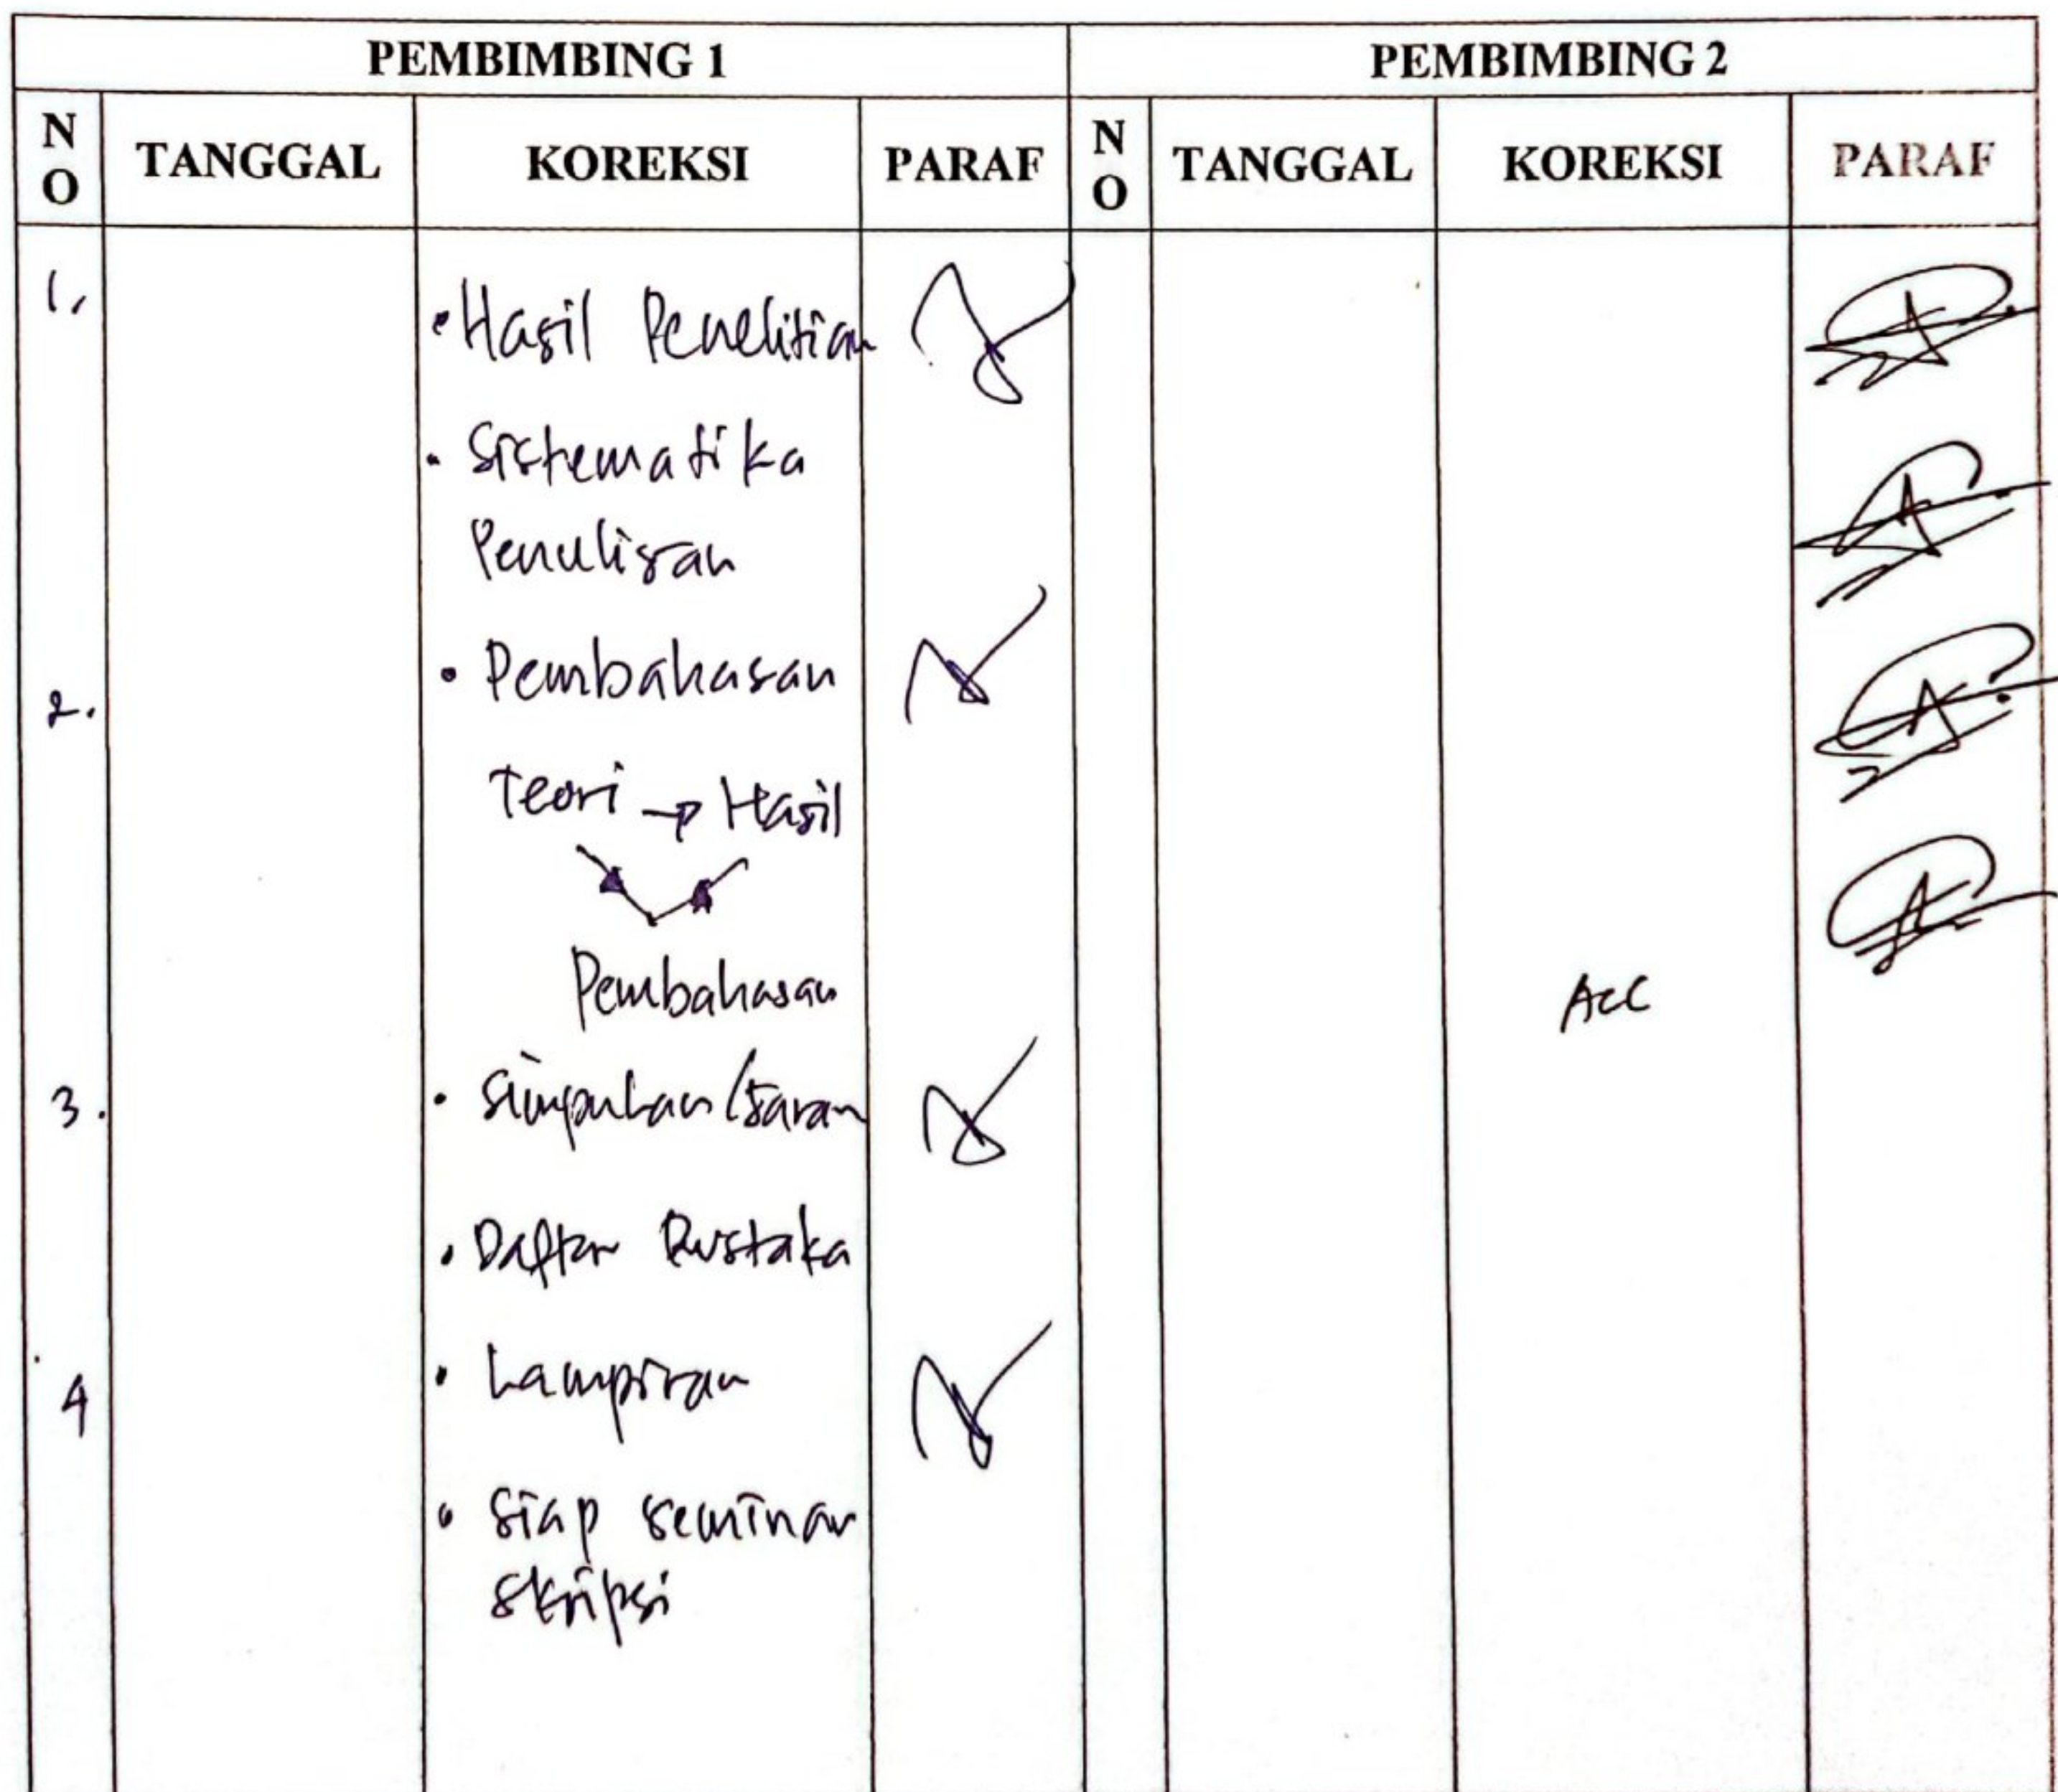 PEMBIMBING 1 PEMBIMBING 2
NO TANGGAL KOREKSI PARAF NO TANGGAL KOREKSI PARAF
1.
• Hasil Penelitian
• Sistematika
Penulisan
2.
• Pembahasan
Teori → Hasil
Pembahasan
ACC
3.
• Simpulan/Saran
• Daftar Pustaka
4
• Lampiran
• Siap seminar
skripsi